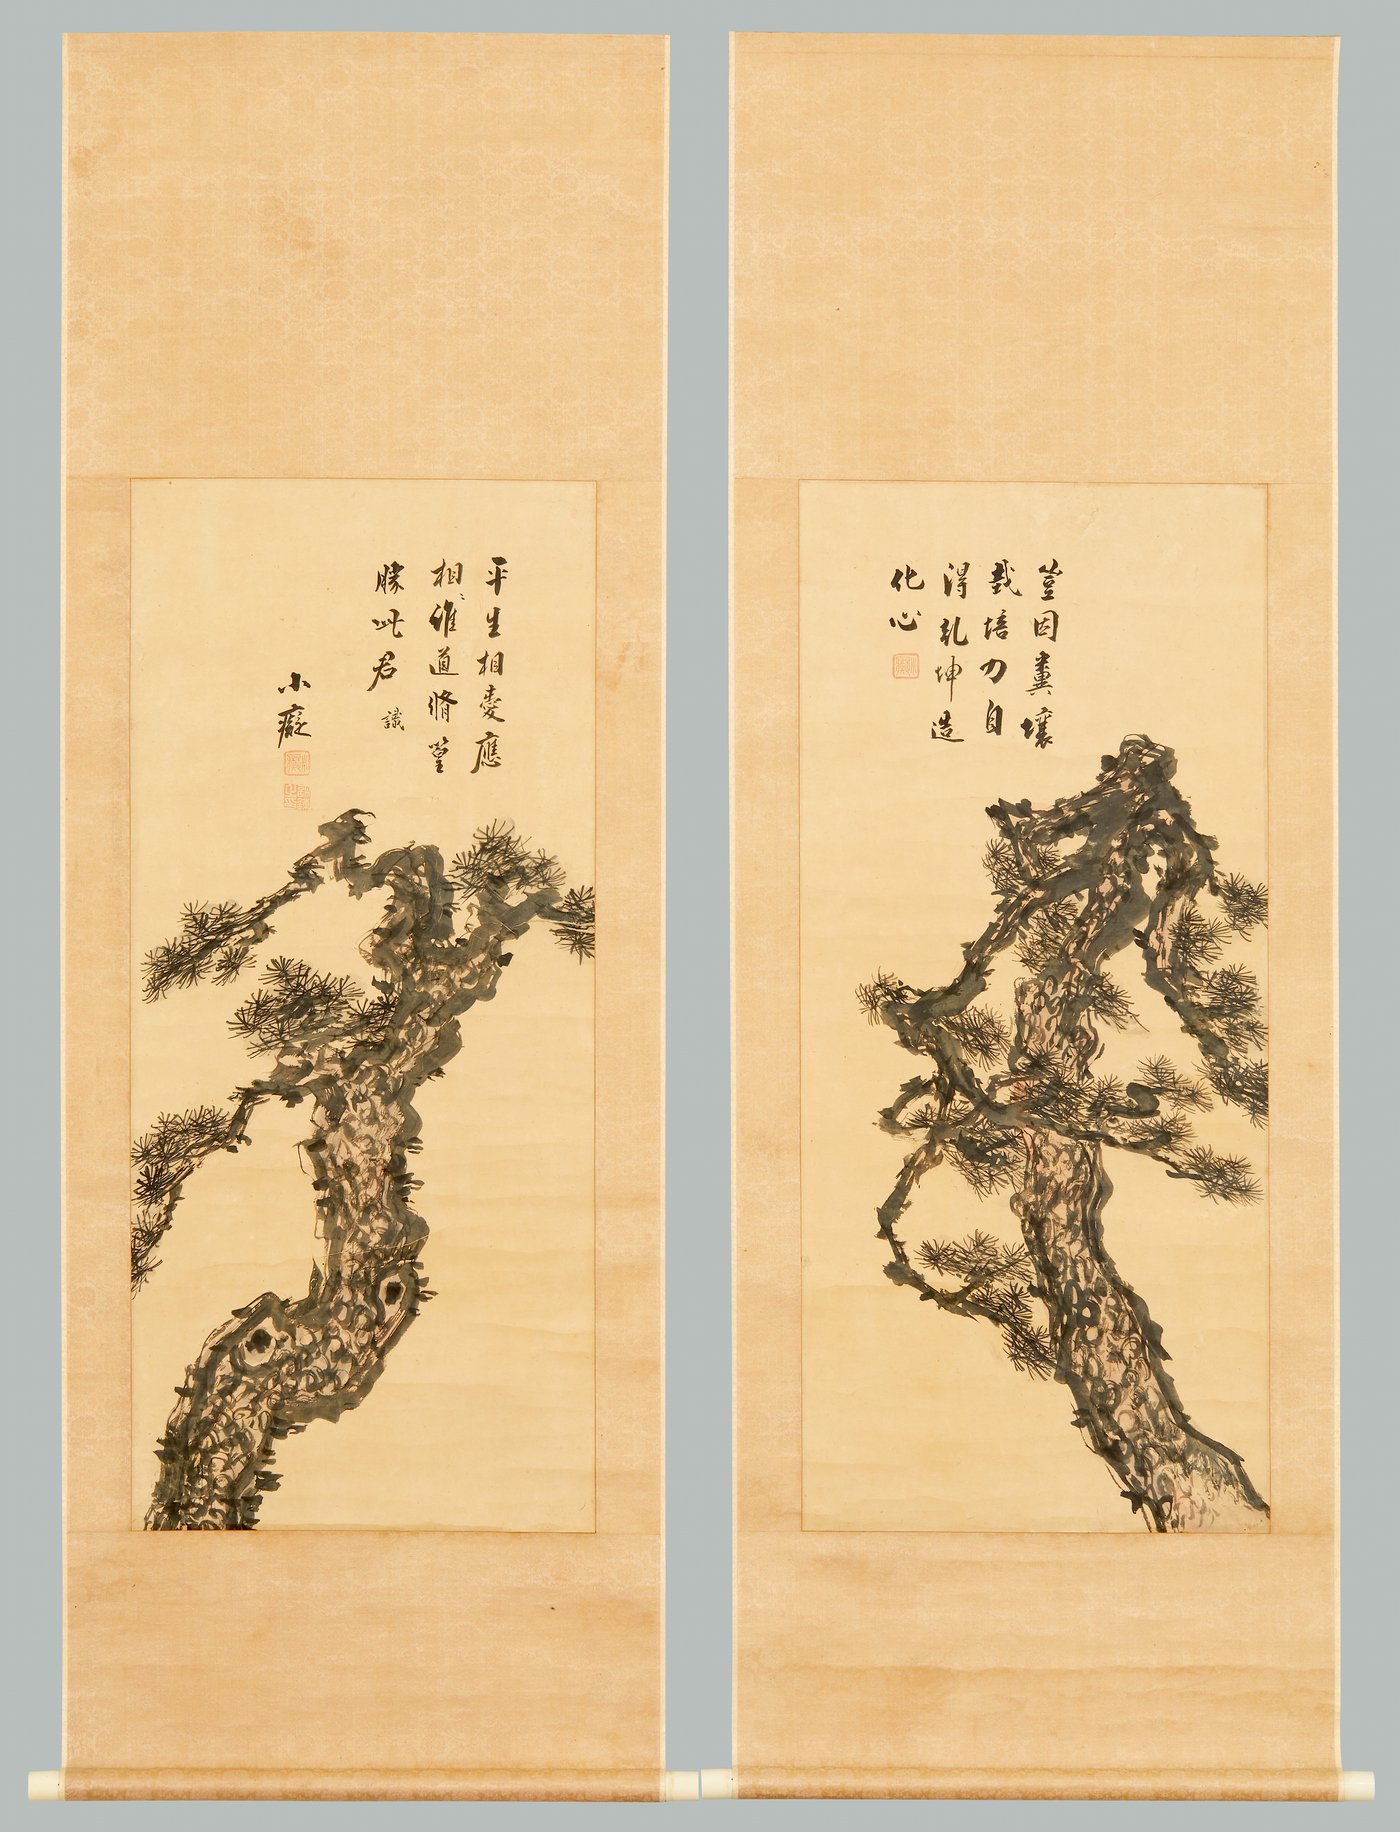 豈因糞壤
栽培力自
得乾坤造
化心
平生相愛應
相〻誰道脩篁
勝此君 識
小癡